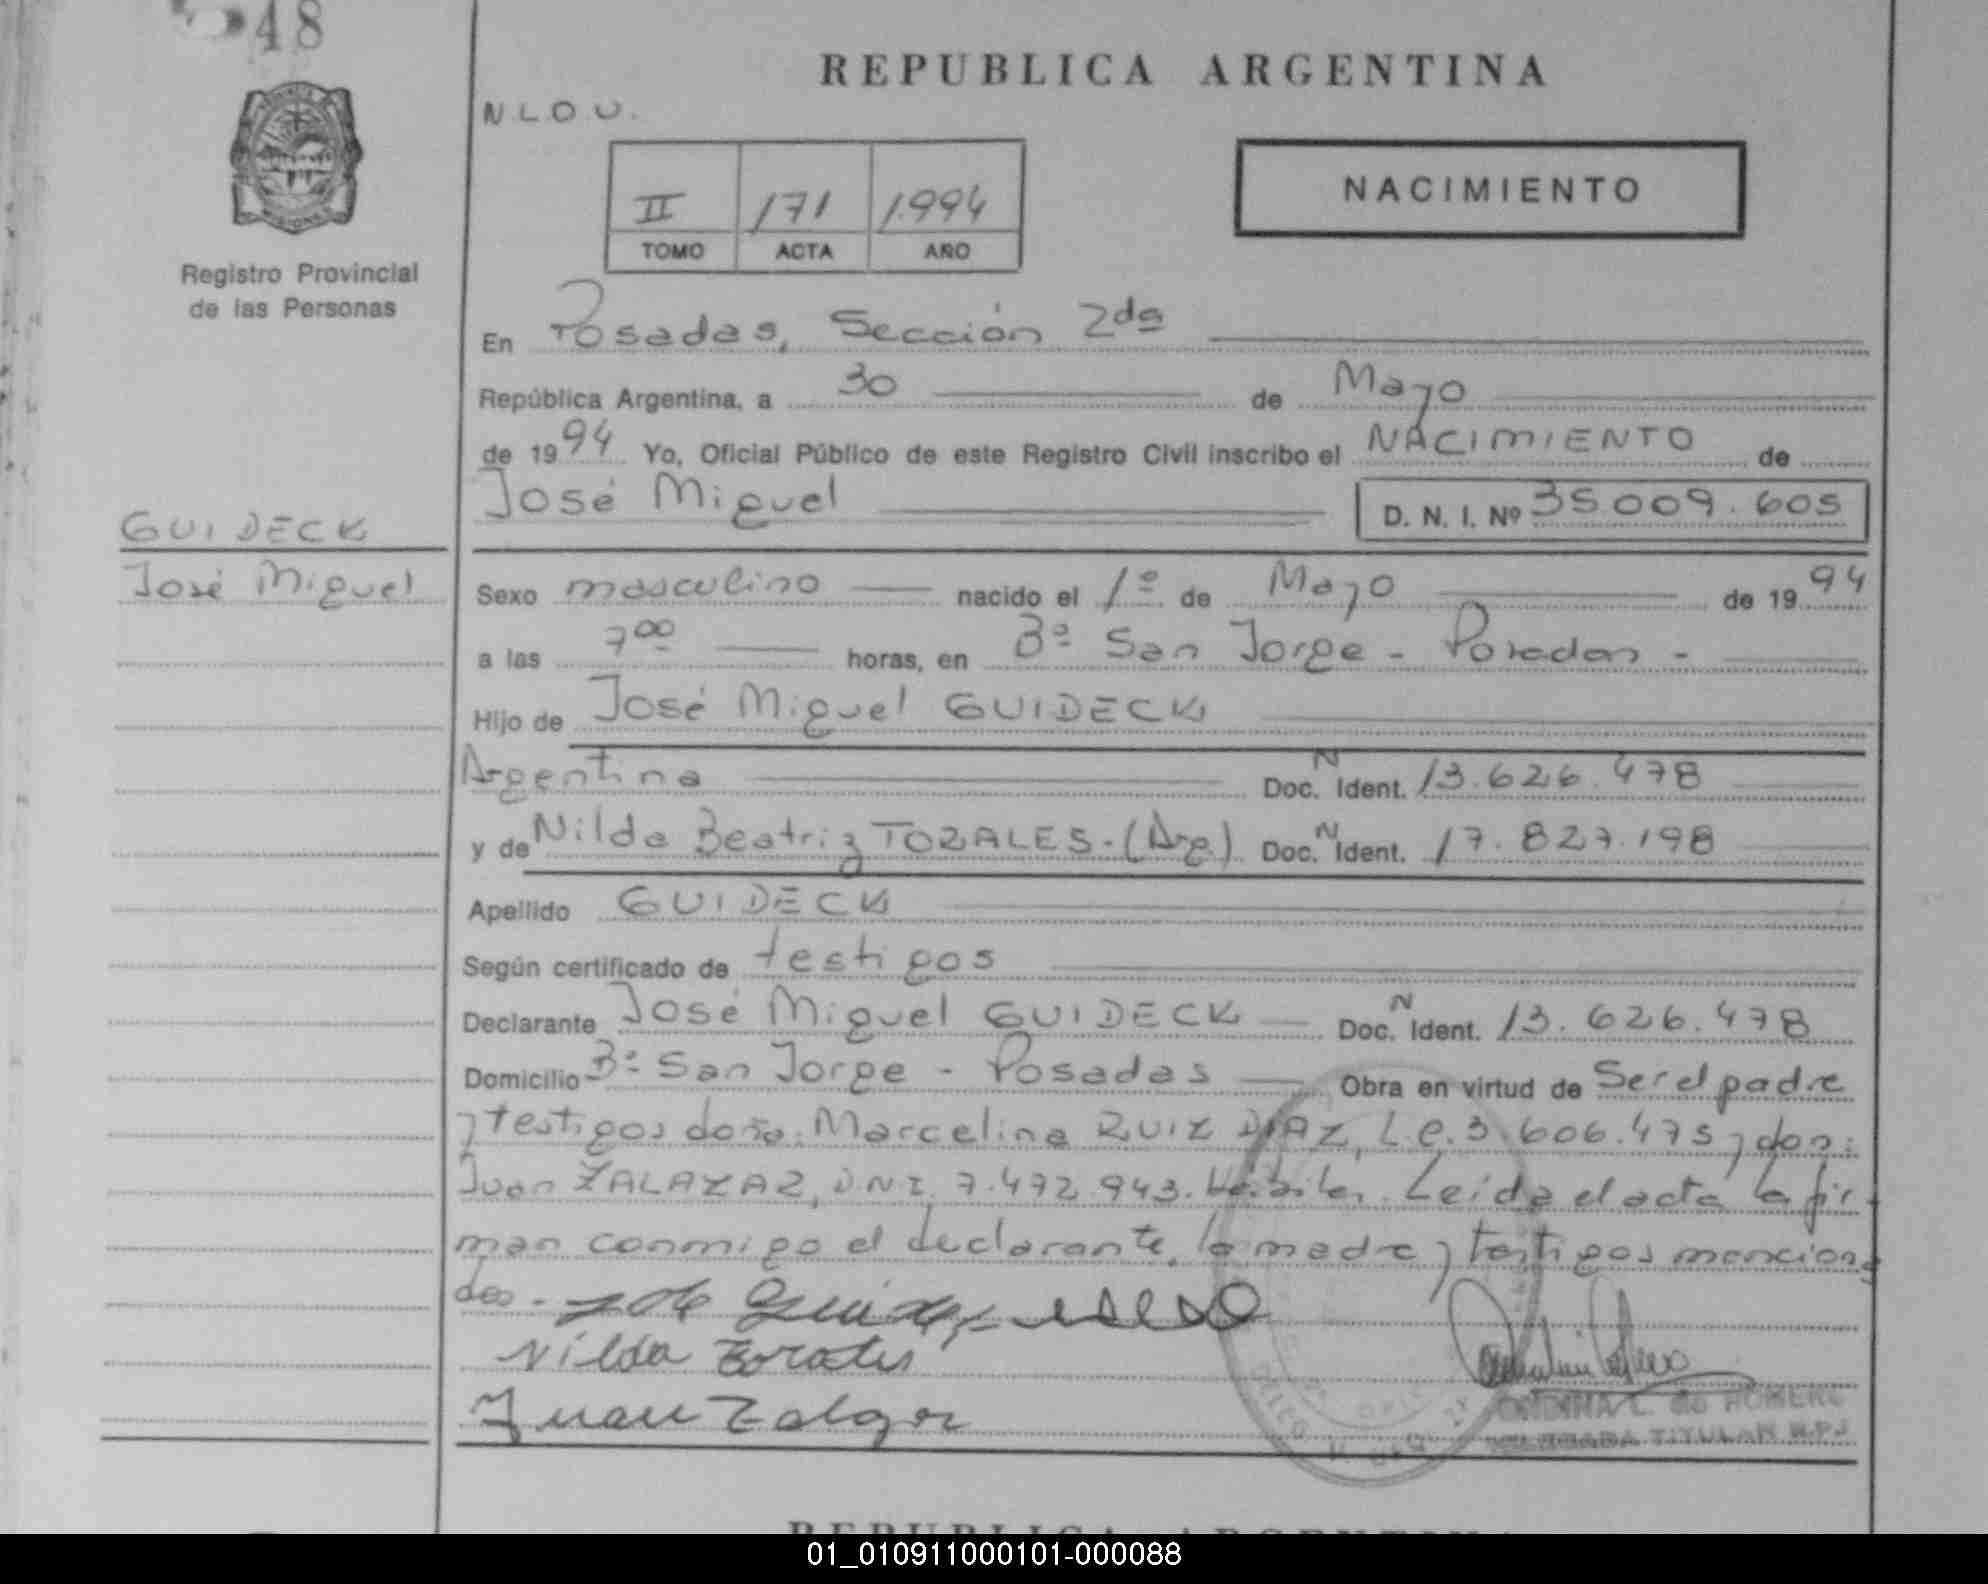 48
REPUBLICA ARGENTINA
N L O U.
II 171 1.994
TOMO ACTA AÑO
NACIMIENTO
Registro Provincial
de las Personas
En Posadas, Sección 2da
República Argentina, a 30 de Mayo
de 1994 Yo, Oficial Público de este Registro Civil inscribo el NACIMIENTO de
José Miguel D. N. I. Nº 35009.605
GUIDECK
José Miguel
Sexo masculino nacido el 1º de Mayo de 1994
a las 7 00 horas, en Bº San Jorge - Posadas -
Hijo de José Miguel GUIDECK
Argentina Doc. N Ident. 13.626.478
y de Nilda Beatriz TORALES.(Arg.) Doc. N Ident. 17.827.198
Apellido GUIDECK
Según certificado de testigos
Declarante José Miguel GUIDECK Doc. N Ident. 13.626.478
Domicilio Bº San Jorge - Posadas Obra en virtud de Ser el padre
y testigos doña: Marcelina RUIZ DIAZ, L.C. 3.606.475 y don:
Juan ZALAZAR, D.N.I. 7.472.943. Hábiles. Leída el acta la fir-
man conmigo el declarante, la madre y testigos menciona
dos.-
Nilda
Juan
ONDINA L. de ROMERO
DELEGADA TITULAR R.P.
REPUBLICA ARGENTINA
01_010911000101-000088